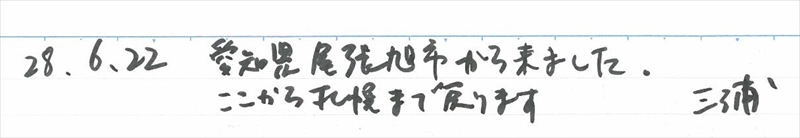 28.6.22 愛知県尾張旭市から来ました。
ここから札幌まで戻ります 三浦